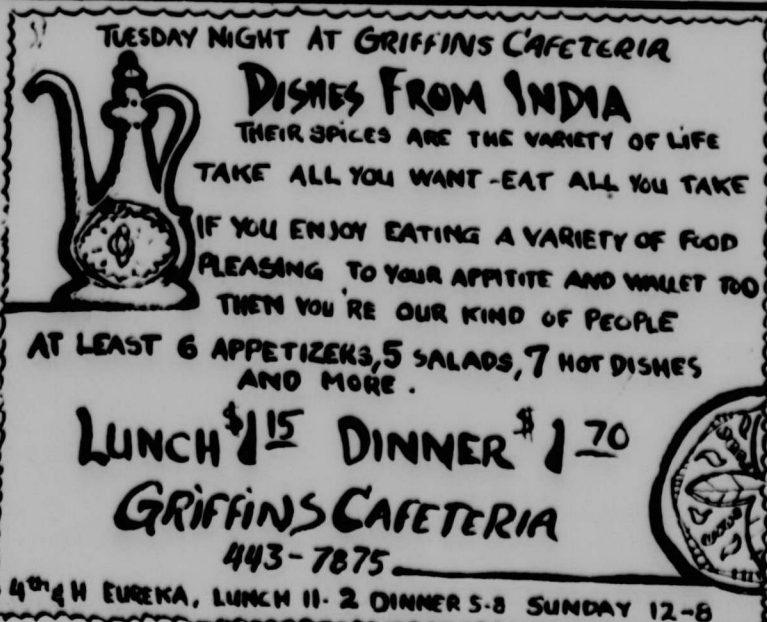 TUESDAY NIGHT AT GRIFFINS CAFETERIA
DISHES FROM INDIA
THEIR SPICES ARE THE VARIETY OF LIFE
TAKE ALL YOU WANT - EAT ALL YOU TAKE
IF YOU ENJOY EATING A VARIETY OF FOOD
PLEASING TO YOUR APPITITE AND WALLET TOO
THEN YOU'RE OUR KIND OF PEOPLE
AT LEAST 6 APPETIZERS, 5 SALADS, 7 HOT DISHES
AND MORE.
LUNCH $1 15 DINNER $1 70
GRIFFINS CAFETERIA
443-7875
4th & H EUREKA. LUNCH 11-2 DINNER 5-8 SUNDAY 12-8